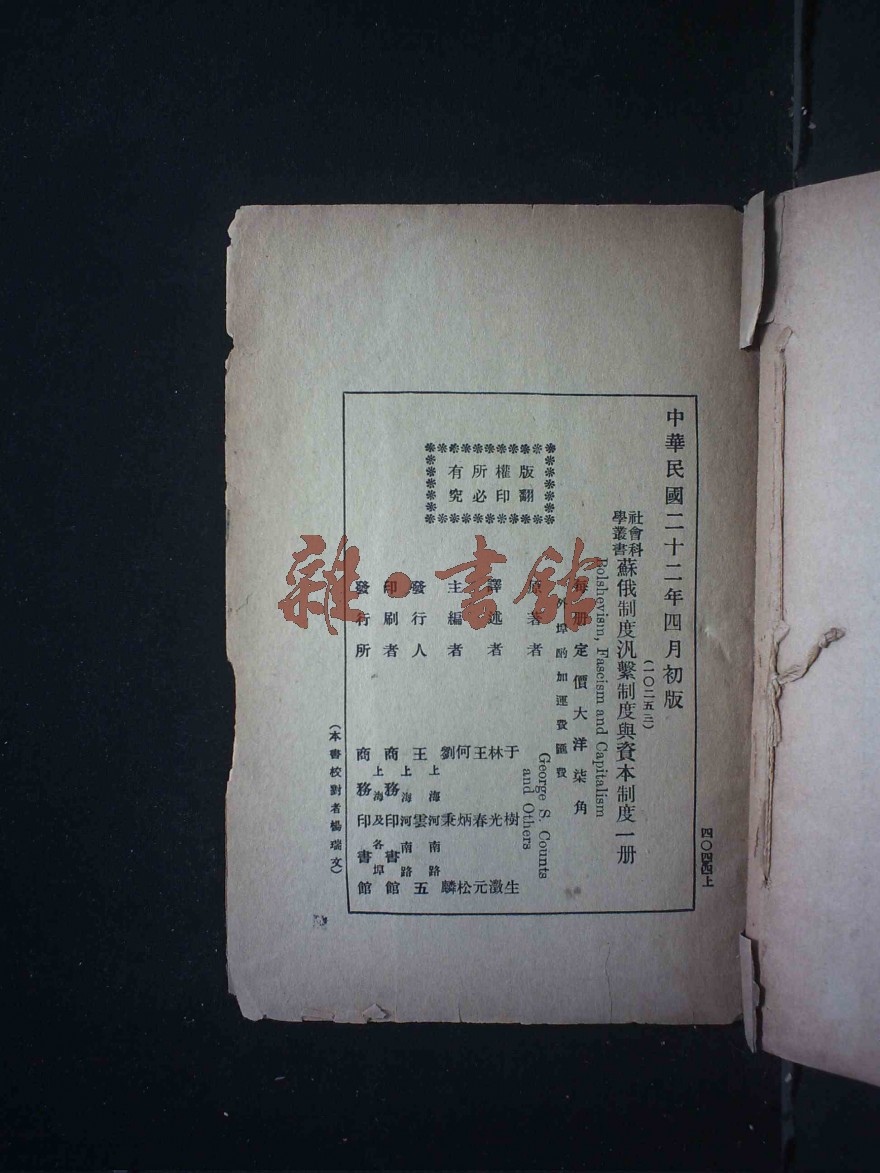 四〇四四上
中華民國二十二年四月初版
(一〇二五三)
社會科
學叢書
蘇俄制度汎繫制度與資本制度一册
Bolshevism, Fascism and Capitalism
每册定價大洋柒角
外埠酌加運費匯費
版權所有
翻印必究
原著者 George S. Counts
and Others
譯述者 于樹生
林光澂
王春元
主編者 何炳松
劉秉麟
發行人 上海河南路
王雲五
印刷者 上海河南路
商務印書館
發行所 上海及各埠
商務印書館
(本書校對者楊瑞文)
雜·書館